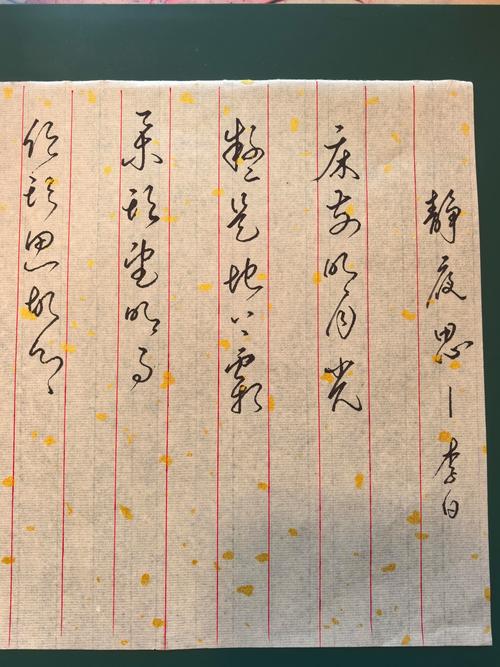 静夜思－李白
床前明月光
疑是地上霜
举头望明月
低头思故乡